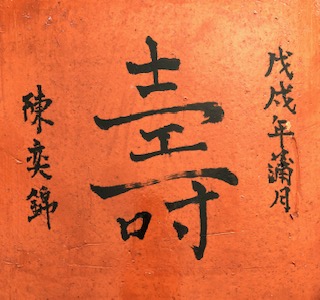 戊戌年蒲月
壽
陳奕錦